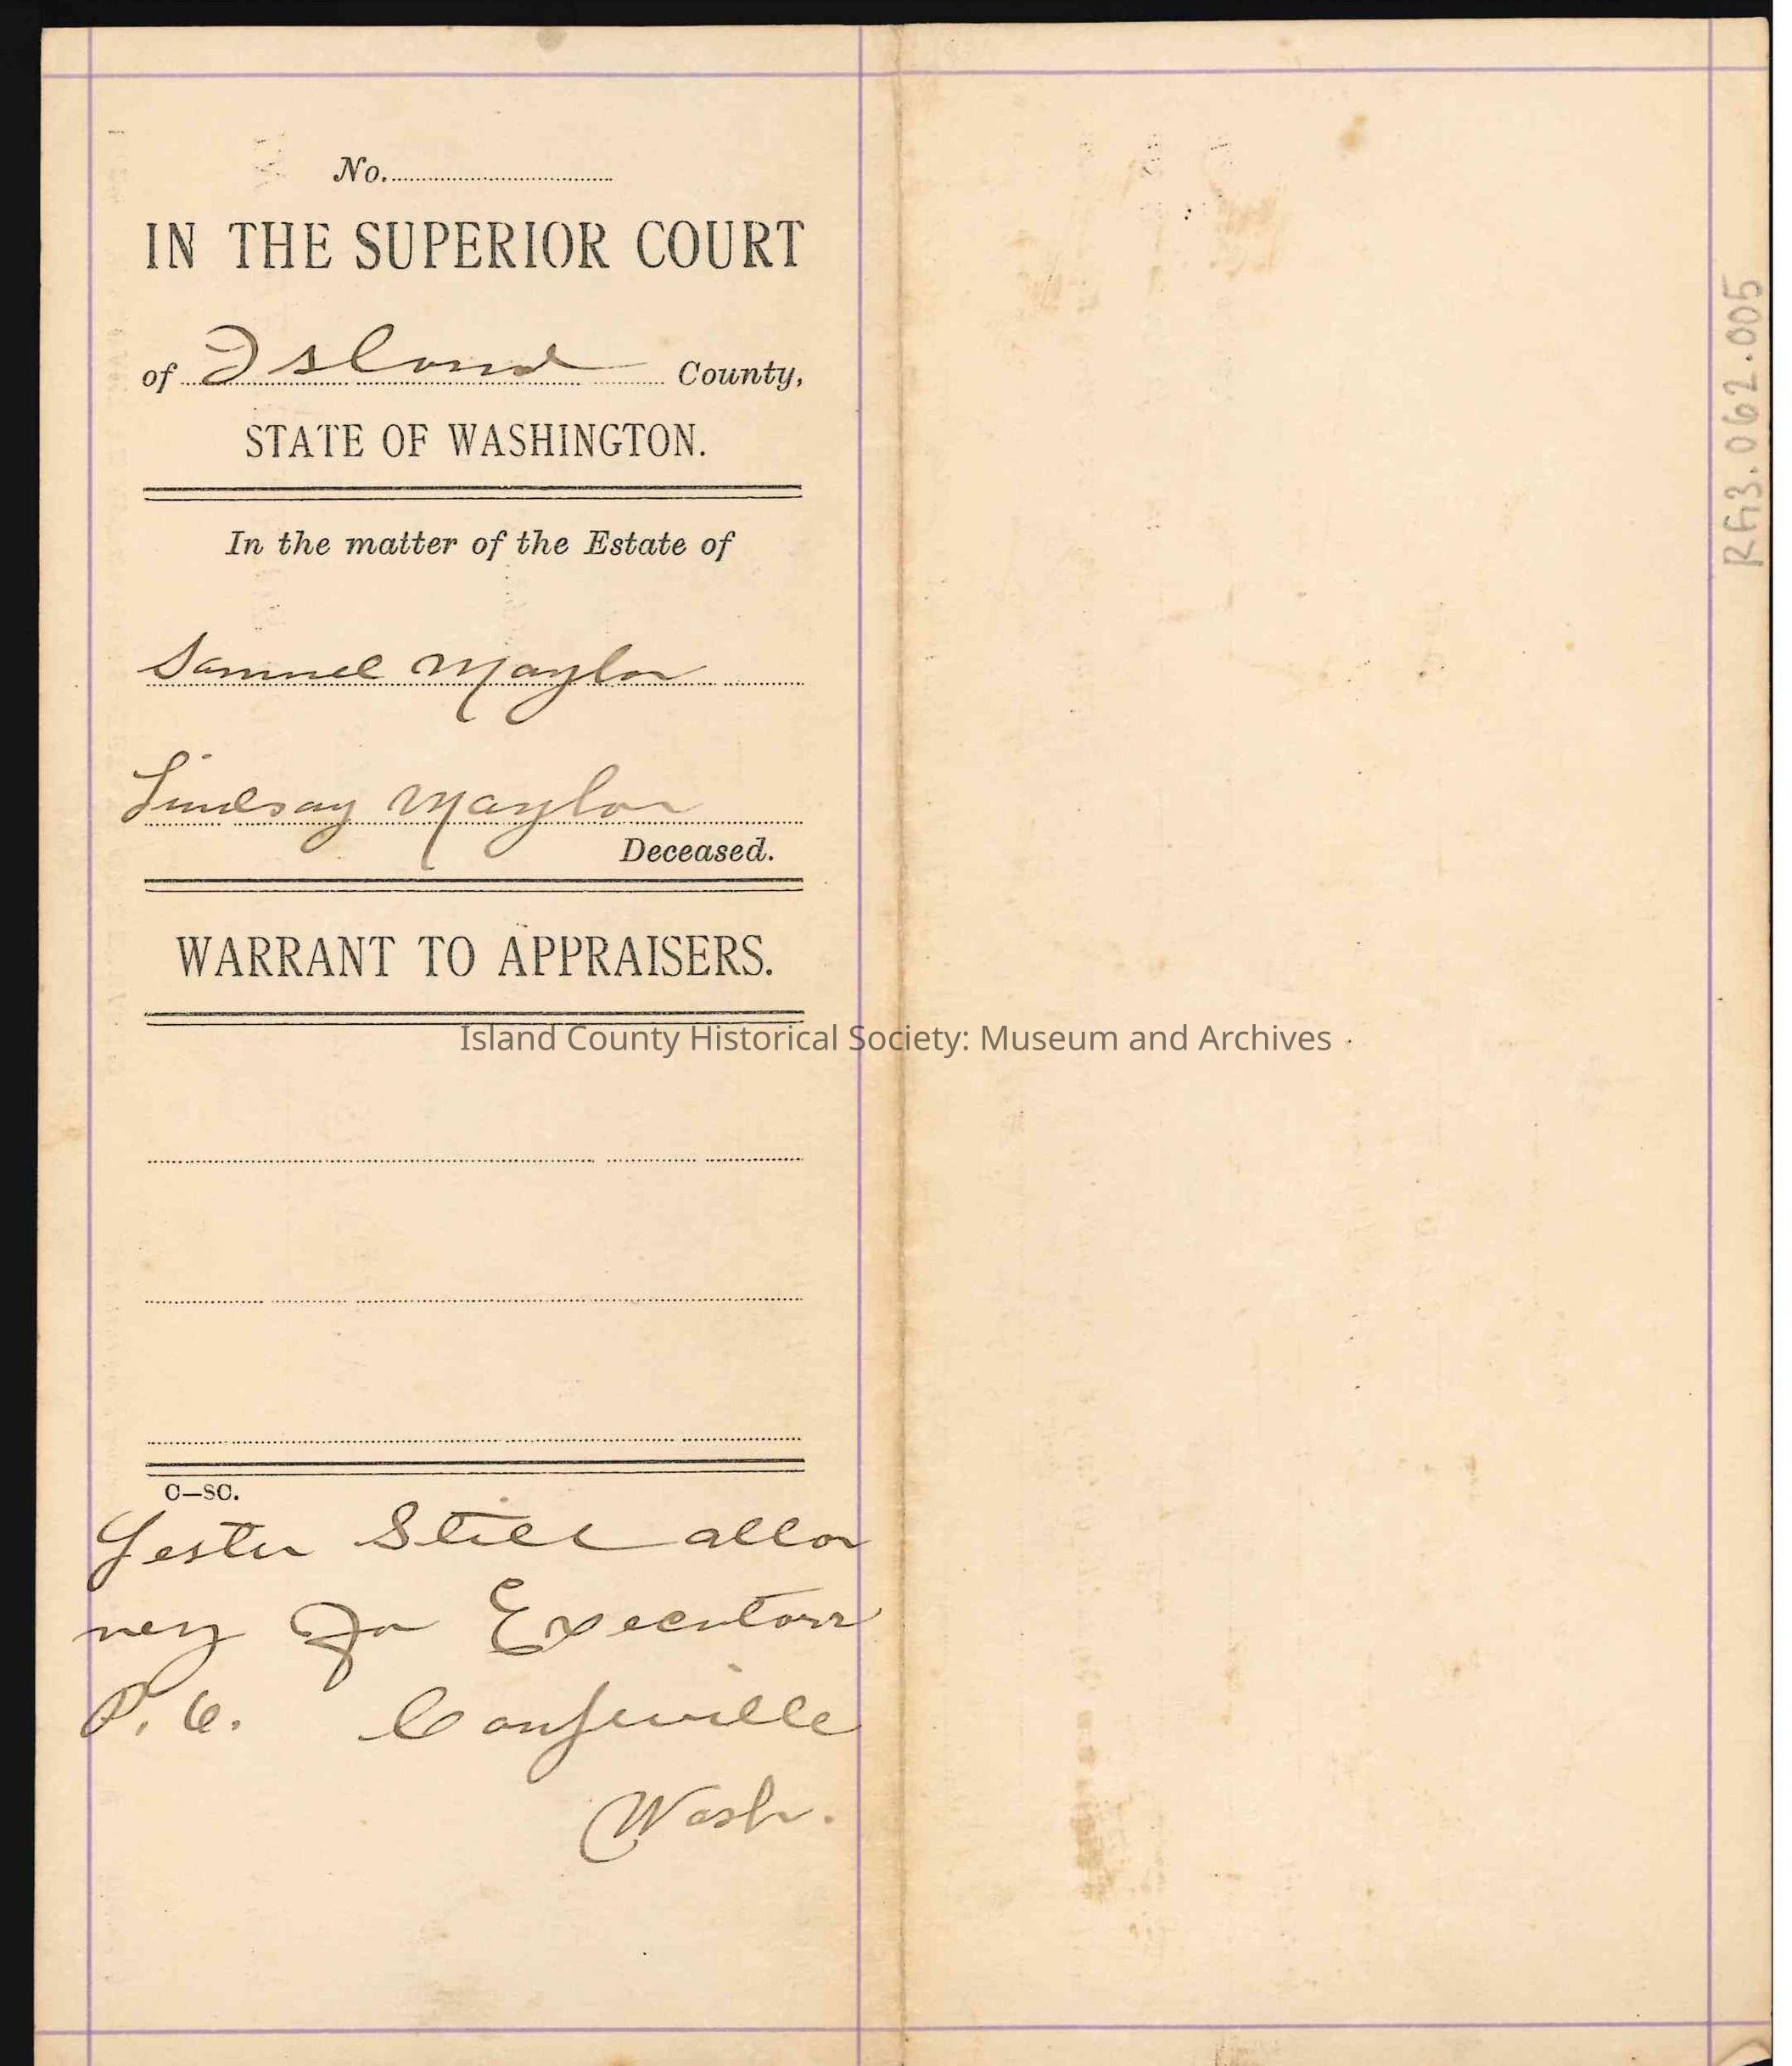 No.
IN THE SUPERIOR COURT
of Island County,
STATE OF WASHINGTON.
In the matter of the Estate of
Samuel Maylor
Lindsay Maylor
Deceased.
WARRANT TO APPRAISERS.
Island County Historical Society: Museum and Archives
C—SC.
Lester Still attor
ney for Executors
P. O. Coupeville
Wash.
RG3.062.005